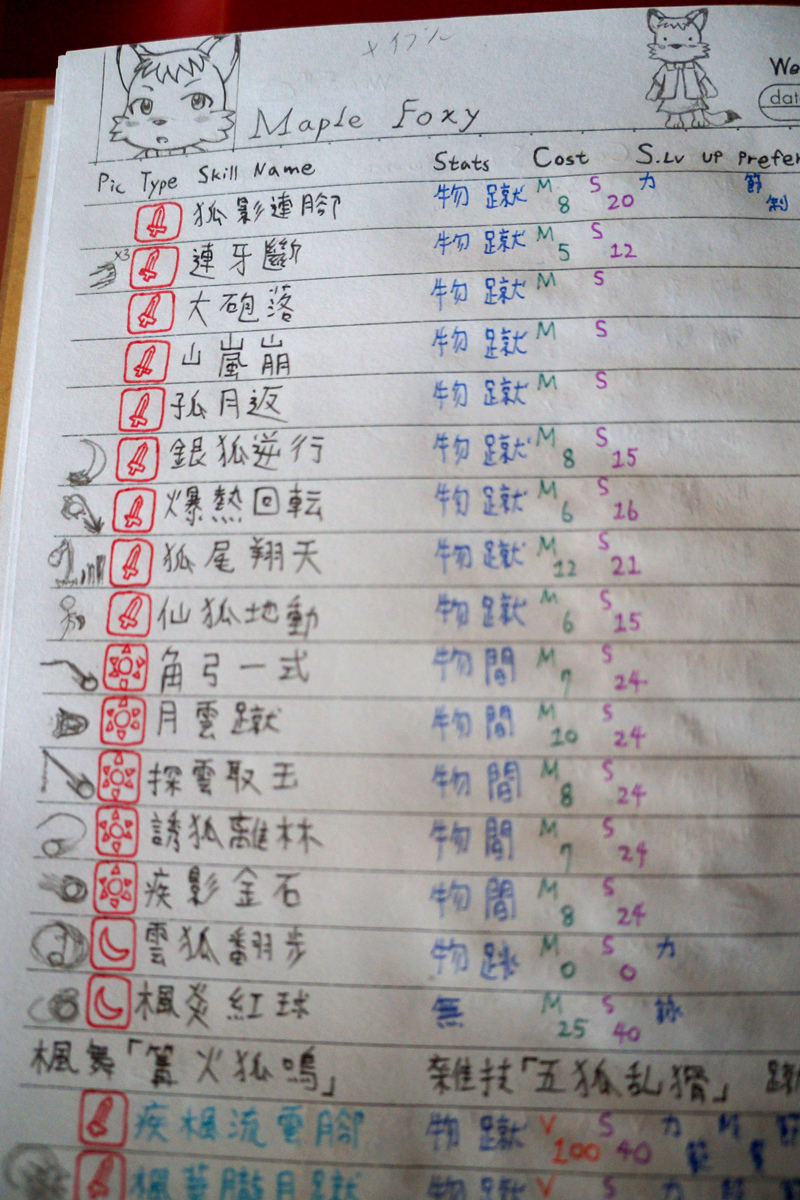 メイプル
Maple Foxy
We
dat
Pic Type Skill Name Stats Cost S.Lv UP Prefer
狐影連腳 物 蹴 M 8 S 20 力 節制
x3 連牙斷 物 蹴 M 5 S 12
大砲落 物 蹴 M S
山嵐崩 物 蹴 M S
孤月返 物 蹴 M S
銀狐逆行 物 蹴 M 8 S 15
爆熱回転 物 蹴 M 6 S 16
狐尾翔天 物 蹴 M 12 S 21
仙狐地動 物 蹴 M 6 S 15
角弓一式 物 間 M 7 S 24
月雲蹴 物 間 M 10 S 24
探雲取玉 物 間 M 8 S 24
誘狐離林 物 間 M 7 S 24
疾影金石 物 間 M 8 S 24
雲狐翻步 物 跳 M 0 S 0 力
楓炎紅球 無 M 25 S 40
楓舞「篝火狐鳴」 雜技「五狐乱猾」 蹴
疾楓流雲腳 物 蹴 V 100 S 40 力 M 節
朧月蹴 物 蹴 V S